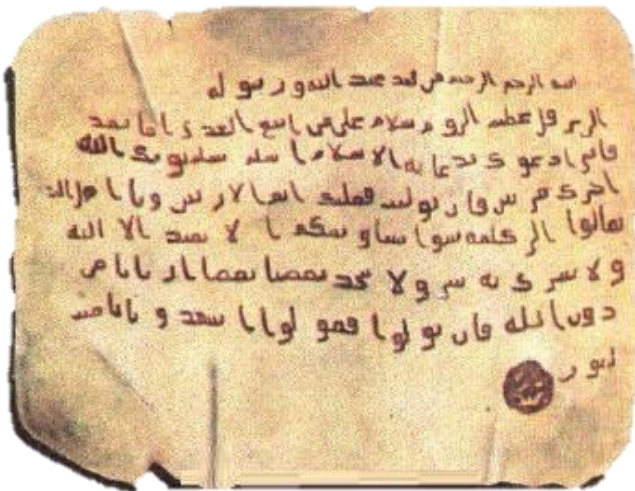 بسم الله الرحمن الرحيم من محمد عبد الله ورسوله
الى هرقل عظيم الروم سلام على من اتبع الهدى اما بعد
فانى ادعوك بدعاية الاسلام اسلم تسلم يوتك الله
اجرك مرتين فان توليت فعليك اثم الاريسين ويا اهل
تعالوا الى كلمة سوا بيننا وبينكم الا نعبد الا الله
ولا نشرك به شيا ولا يتخذ بعضنا بعضا اربابا من
دون الله فان تولوا فقولوا اشهدوا بانا مسلمون